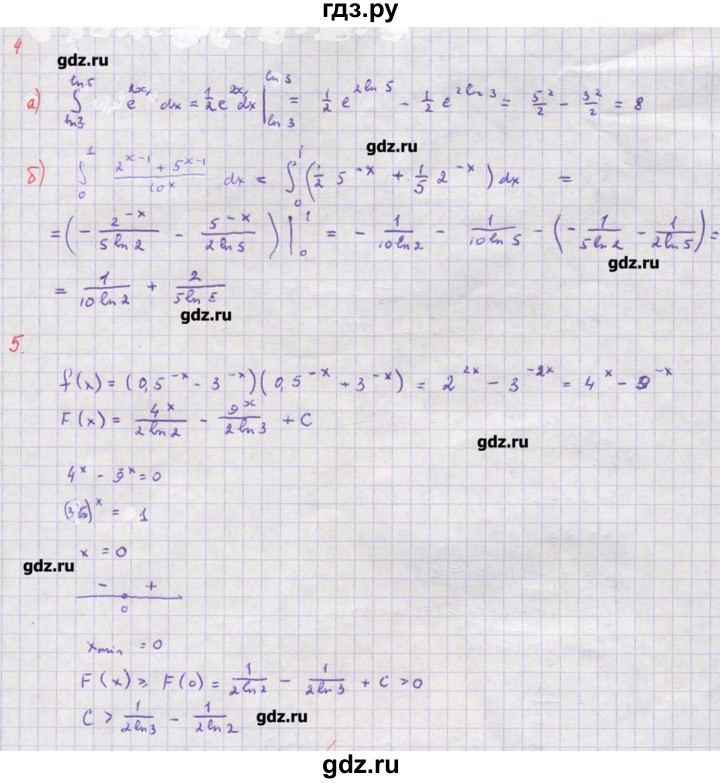 гдз.ру
4
gdz.ru
а) ∫_{ln3}^{ln5} e^{2x} dx = 1/2 e^{2x} dx |_{ln 3}^{ln 5} = 1/2 e^{2 ln 5} - 1/2 e^{2 ln 3} = 5²/2 - 3²/2 = 8
gdz.ru
б) ∫_0^1 (2^{x-1} + 5^{x-1})/10^x dx = ∫_0^1 (1/2 5^{-x} + 1/5 2^{-x}) dx =
= (- 2^{-x}/(5 ln 2) - 5^{-x}/(2 ln 5)) |_0^1 = - 1/(10 ln 2) - 1/(10 ln 5) - (- 1/(5 ln 2) - 1/(2 ln 5)) =
gdz.ru
= 1/(10 ln 2) + 2/(5 ln 5)
gdz.ru
5.
f(x) = (0,5^{-x} - 3^{-x})(0,5^{-x} + 3^{-x}) = 2^{2x} - 3^{-2x} = 4^x - 9^{-x}
F(x) = 4^x/(2 ln 2) - 9^x/(2 ln 3) + C
gdz.ru
4^x - 9^x = 0
(36)^x = 1
x = 0
gdz.ru
- +
0
x_{min} = 0
F(x) ≥ F(0) = 1/(2 ln 2) - 1/(2 ln 3) + C > 0
C > 1/(2 ln 3) - 1/(2 ln 2)
gdz.ru
гдз.ру